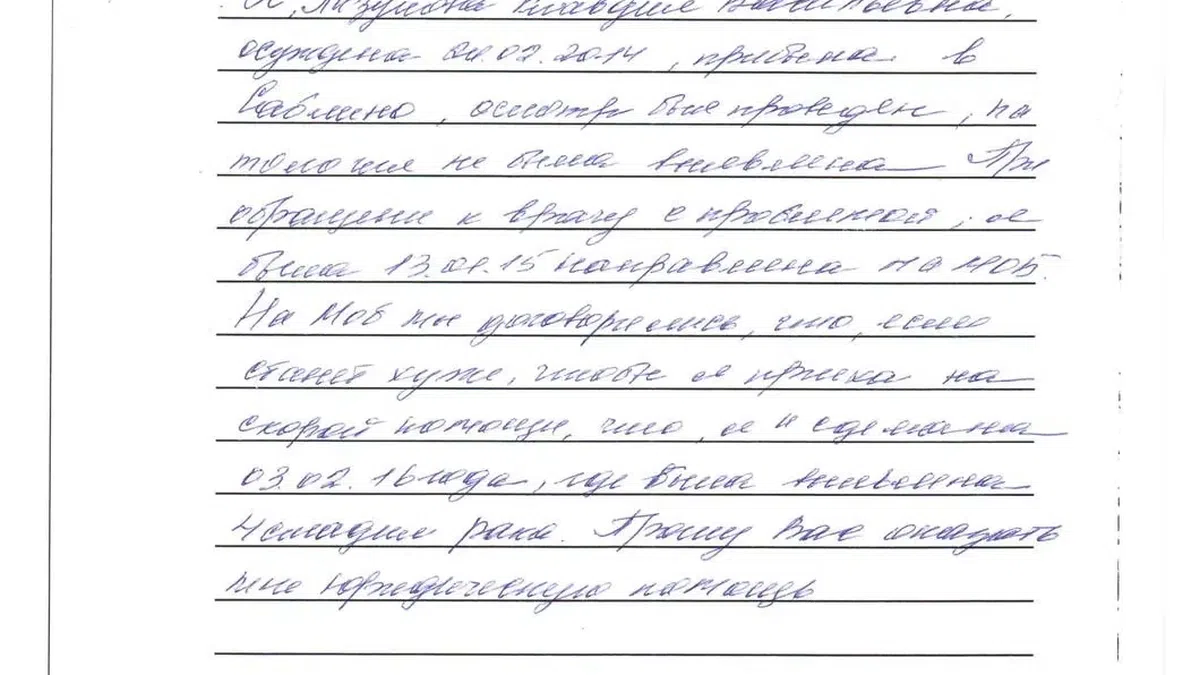 Я, Лизунова Клавдия Васильевна,
осуждена 24.02.2014, прибыла в
Саблино, осмотр был проведен, па
тология не была выявлена При
обращени к врачу с проблемой, я
была 13.01.15 направлена на МОБ.
На Моб мы договорились, что, если
станет хуже, чтобы я приеха на
скорой помощи, что, я и сделала
03.02.16 года, где была выявлена
4 стадия рака. Прошу Вас оказать
мне юридическую помощь